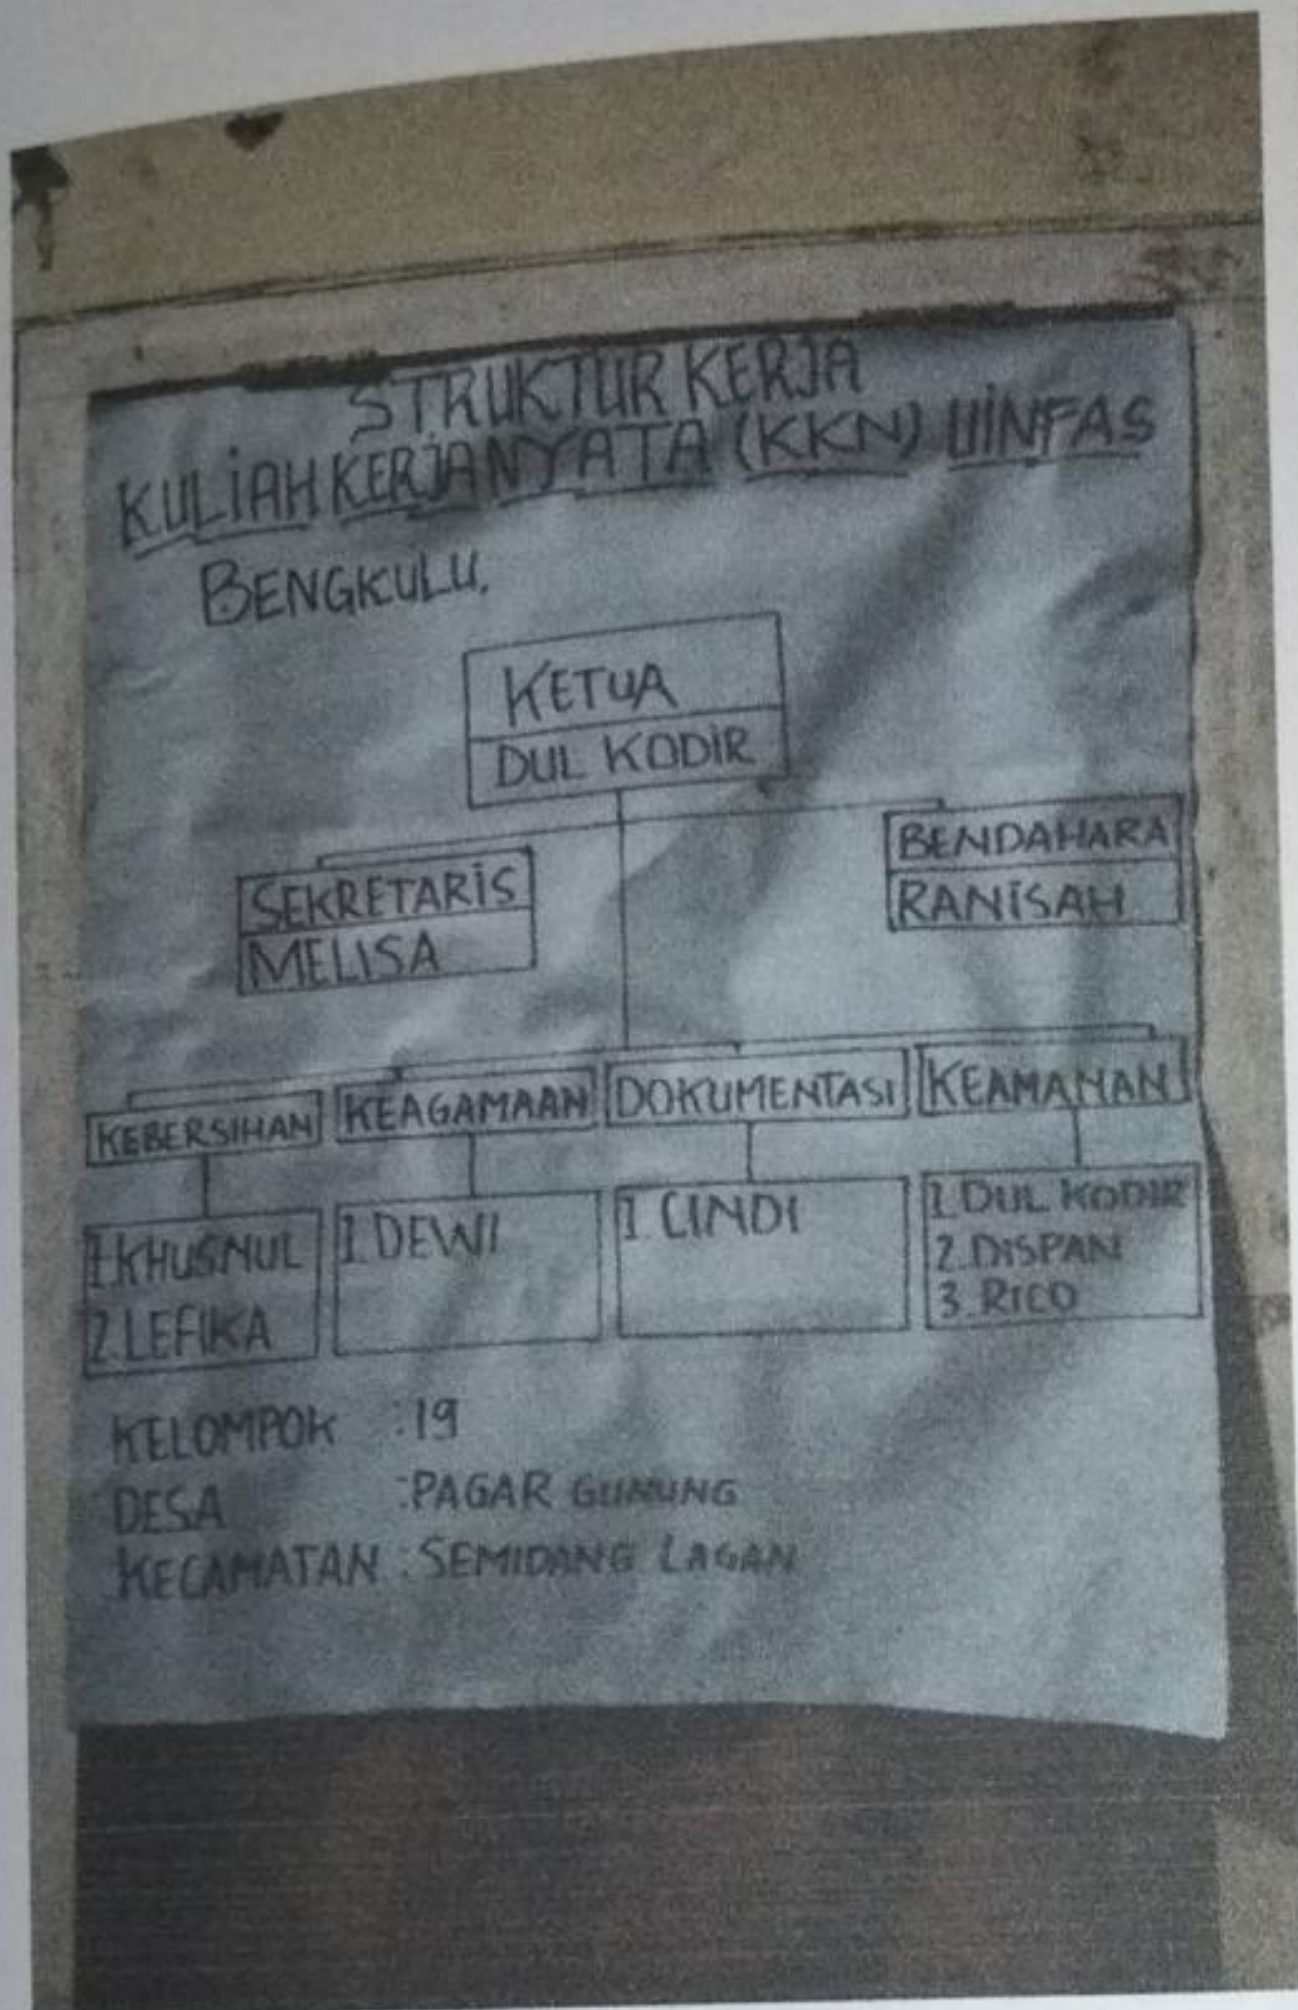 STRUKTUR KERJA
KULIAH KERJA NYATA (KKN) UINFAS
BENGKULU.
KETUA
DUL KODIR
SEKRETARIS
MELISA
BENDAHARA
RANISAH
KEBERSIHAN
1. KHUSNUL
2. LEFIKA
KEAGAMAAN
1. DEWI
DOKUMENTASI
1. CINDI
KEAMANAN
1. DUL KODIR
2. DISPAN
3. RICO
KELOMPOK : 19
DESA : PAGAR GUNUNG
KECAMATAN : SEMIDANG LAGAN